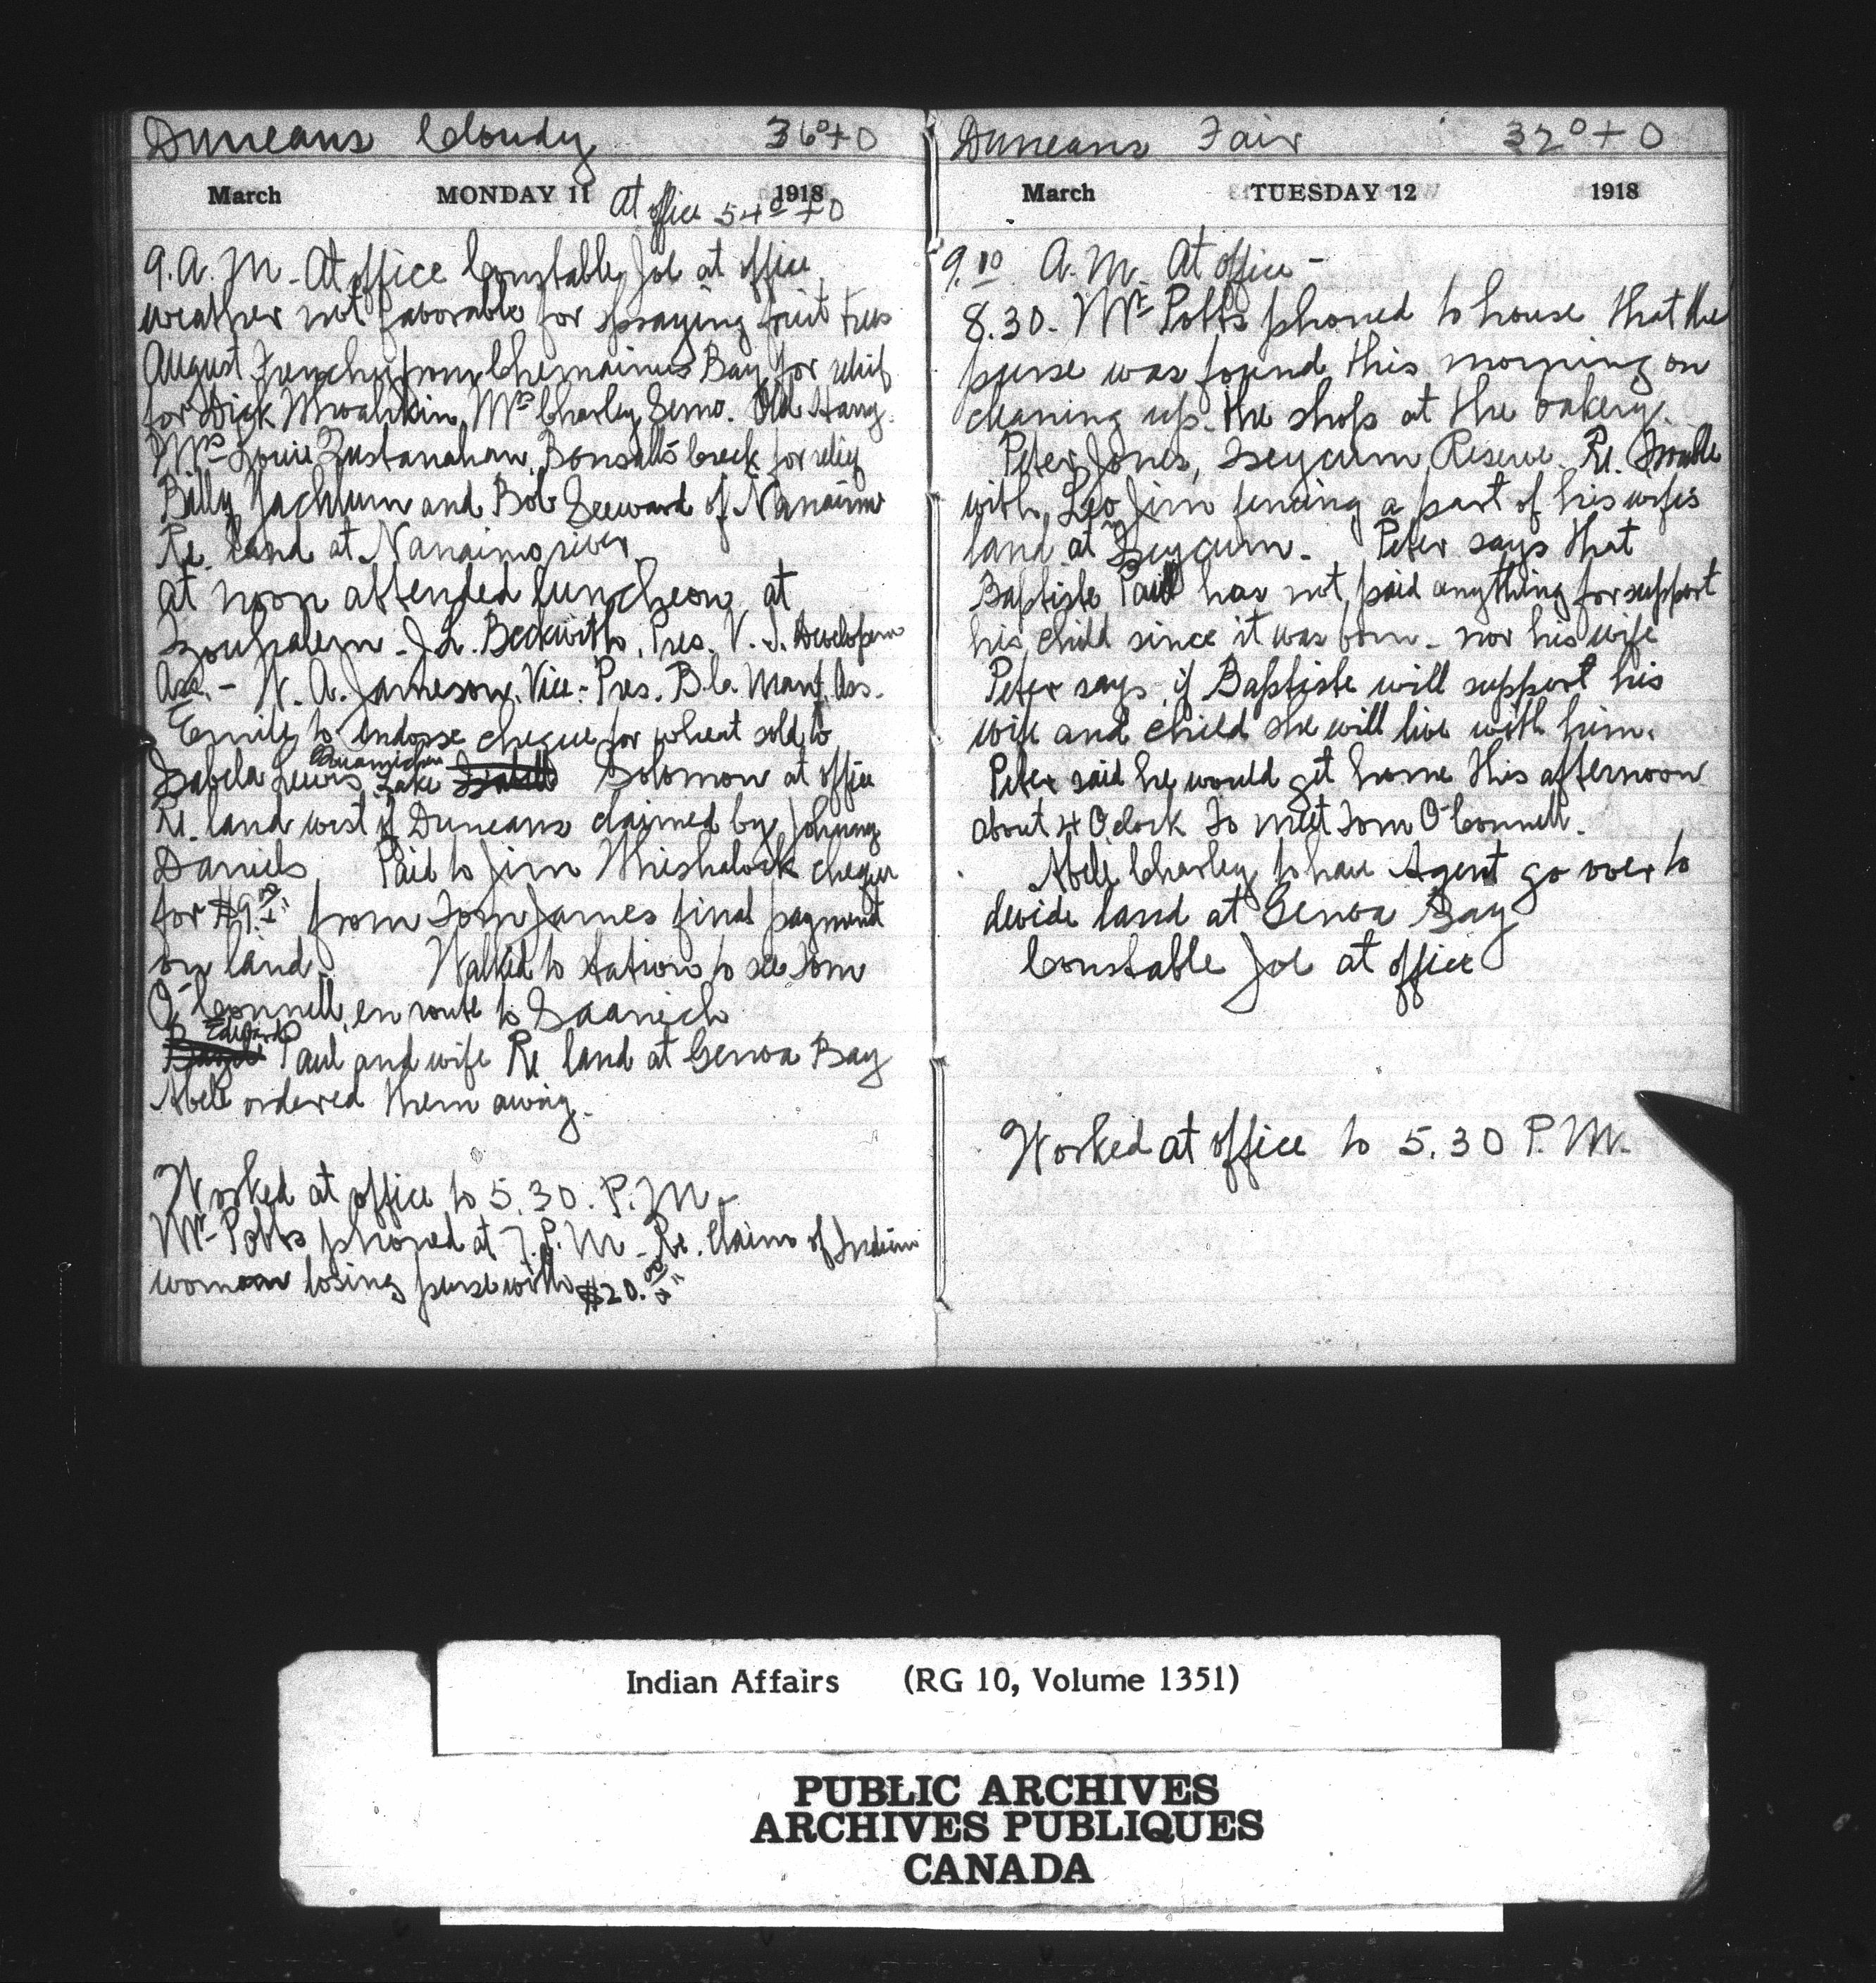 Duncans Cloudy 36°+0
March MONDAY 11 1918
At office 54°+0
9. A. M - At office Constable Joe at office
weather not favorable for spraying fruit trees
August Frenchy from Chemainus Bay for relief
for Dick Mrs Charley Semo. Old Harry.
Mrs Louie Bonsall's Creek for relief
Billy and Bob Seeward of Nanaimo
Re. land at Nanaimo river
at noon attended luncheon at
Tzouhalem - J.L. Beckwith, Pres. V. I. Developem
Ass. - W. A. Jameson, Vice-Pres. B.C. Manf. Ass.
Emile to endorse cheque for wheat sold to
Isabela Lewis Quamichan Lake Solomon at office
Re. land west of Duncans claimed by Johnny
Daniels. Paid to Jim cheque
for $9. from Tom James final payment
on land. Walked to station to see Tom
O'Connell, en route to Saanich
Edward Paul and wife Re land at Genoa Bay
Abell ordered them away.
Worked at office to 5.30. P.M -
Mr Potts phoned at 7. P. M - Re. Claim of Indian
woman losing purse with $20.
Duncans Fair 32°+0
March TUESDAY 12 1918
9.10 A. M. At office -
8.30. Mr Potts phoned to house that the
purse was found this morning on
cleaning up the shop at the bakery.
Peter Jones, Tseycum Reserve. Re. Trouble
with Leo Jim fencing a part of his wifes
land at Tseycum. Peter says that
Baptiste Paul has not paid anything for support
his child since it was born - nor his wife
Peter says if Baptiste will support his
wife and child she will live with him.
Peter said he would get home this afternoon
about 4 Oclock To meet Tom O'Connell.
Abel Charley to have Agent go over to
devide land at Genoa Bay
Constable Joe at office
Worked at office to 5.30 P. M.
Indian Affairs (RG 10, Volume 1351)
PUBLIC ARCHIVES
ARCHIVES PUBLIQUES
CANADA